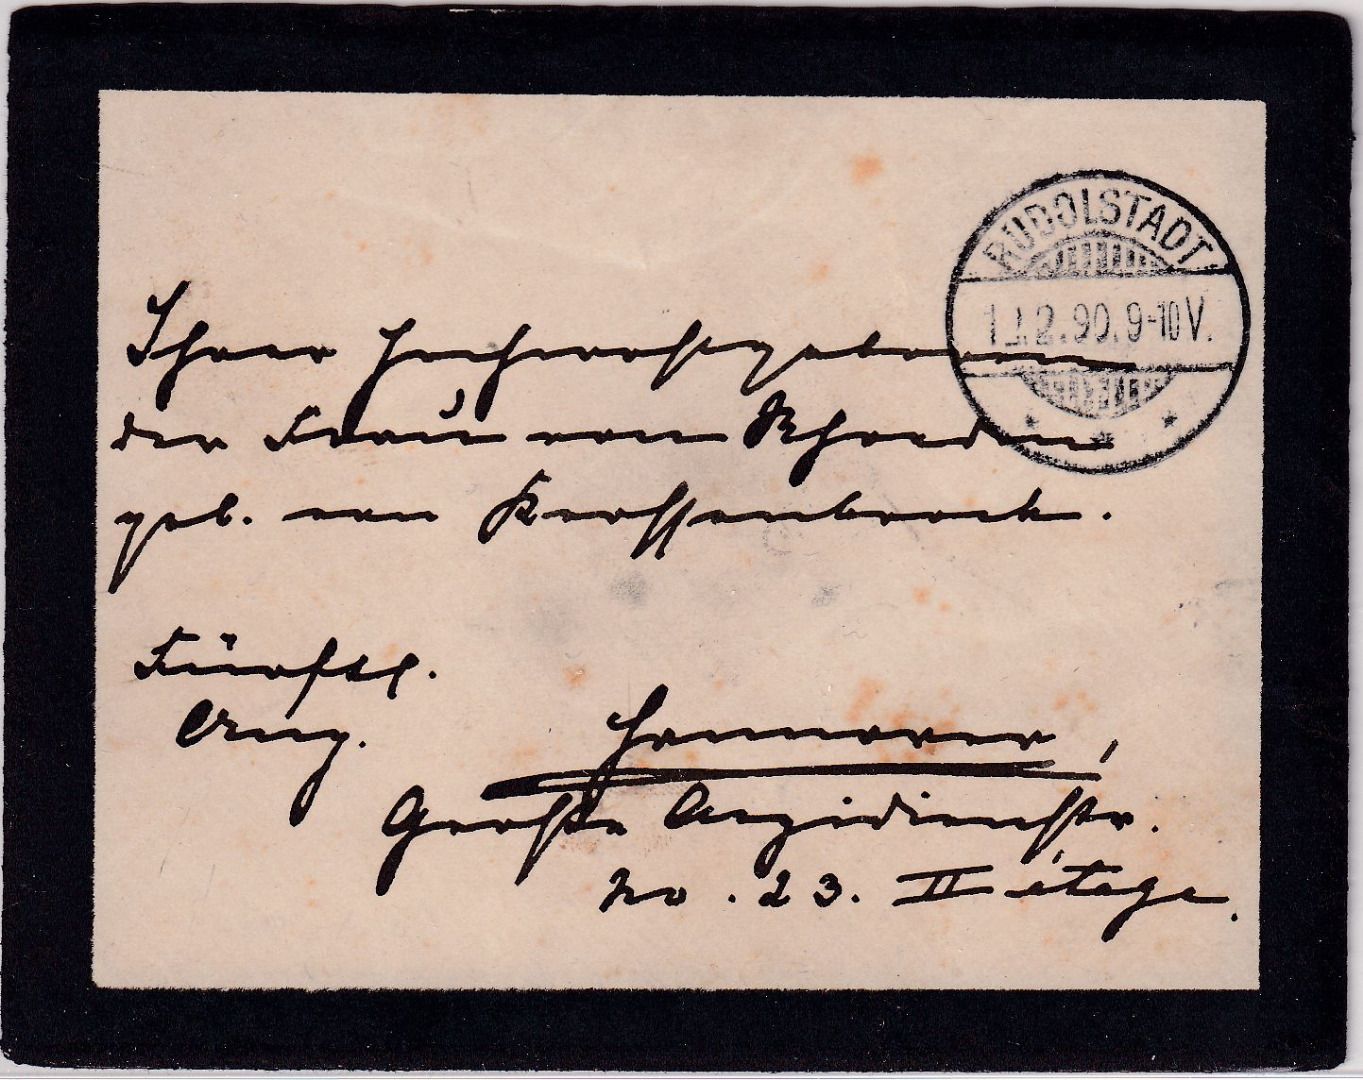 RUDOLSTADT
12.90.9-10V.
Ihrer Hochwohlgeboren
der Frau von Rhoeden
geb. von Krossenbrock.
Fürstl.
Ang.
Hannover,
Große Aegidienstr.
No. 23. II étage.